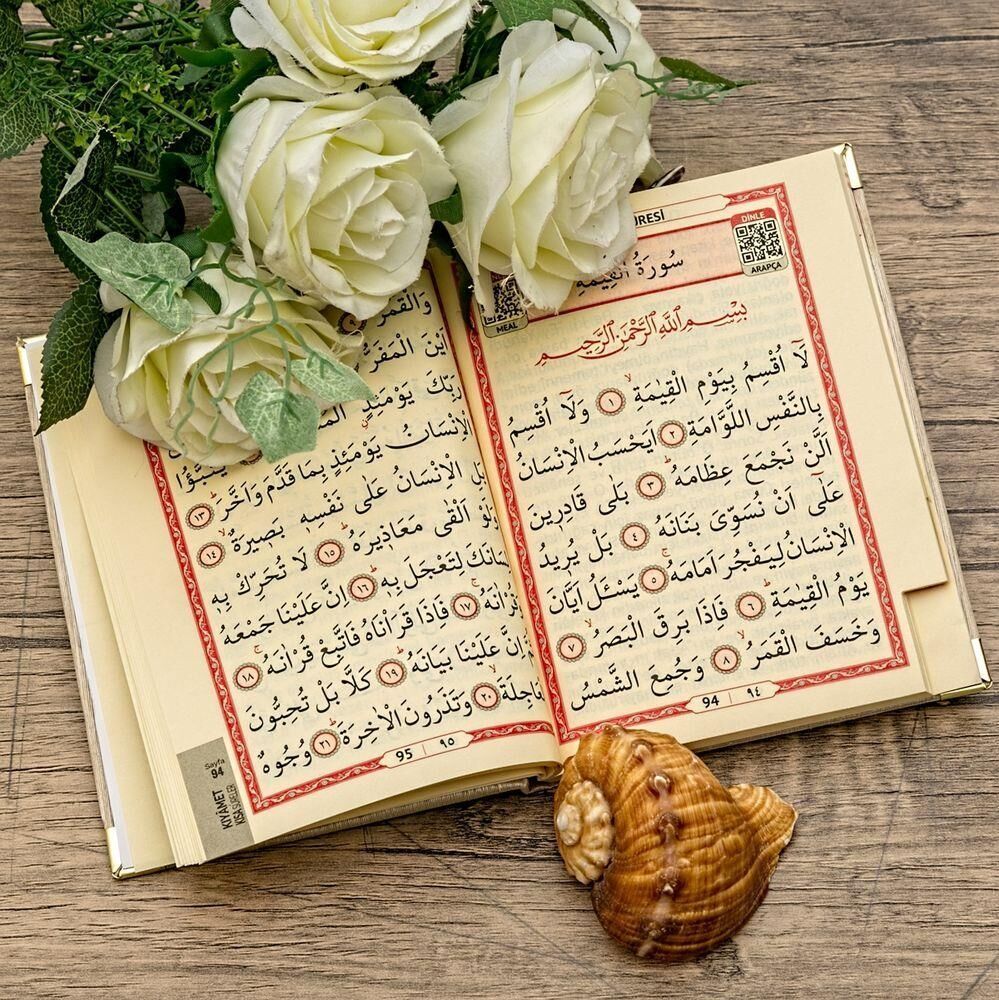 RESİ
DİNLE
ARAPÇA
MEAL
سُورَةُ الْقِيٰمَةِ
بِسْمِ اللّٰهِ الرَّحْمٰنِ الرَّحِيمِ
لَٓا اُقْسِمُ بِيَوْمِ الْقِيٰمَةِۙ ١ وَلَٓا اُقْسِمُ
بِالنَّفْسِ اللَّوَّامَةِ ٢ اَيَحْسَبُ الْاِنْسَانُ
اَلَّنْ نَجْمَعَ عِظَامَهُۜ ٣ بَلٰى قَادِرِينَ
عَلٰٓى اَنْ نُسَوِّىَ بَنَانَهُ ٤ بَلْ يُرِيدُ
الْاِنْسَانُ لِيَفْجُرَ اَمَامَهُۚ ٥ يَسْـَٔلُ اَيَّانَ
يَوْمُ الْقِيٰمَةِۜ ٦ فَاِذَا بَرِقَ الْبَصَرُۙ ٧
وَخَسَفَ الْقَمَرُۙ ٨ وَجُمِعَ الشَّمْسُ
94 | ٩٤
وَالْقَمَرُ
اَيْنَ الْمَفَرُّ
رَبِّكَ يَوْمَئِذٍ
الْاِنْسَانُ يَوْمَئِذٍ بِمَا قَدَّمَ وَاَخَّرَۜ ١٣
بَلِ الْاِنْسَانُ عَلٰى نَفْسِه۪ بَص۪يرَةٌۙ ١٤
وَلَوْ اَلْقٰى مَعَاذ۪يرَهُۜ ١٥ لَا تُحَرِّكْ بِه۪
لِسَانَكَ لِتَعْجَلَ بِه۪ۜ ١٦ اِنَّ عَلَيْنَا جَمْعَهُ
١٧ فَاِذَا قَرَاْنَاهُ فَاتَّبِعْ قُرْاٰنَهُۚ ١٨
اِنَّ عَلَيْنَا بَيَانَهُۜ ١٩ كَلَّا بَلْ تُحِبُّونَ
٢٠ وَتَذَرُونَ الْاٰخِرَةَۜ ٢١ وُجُوهٌ
95 | ٩٥
Sayfa
94
KIYÂMET
KISA SURELER